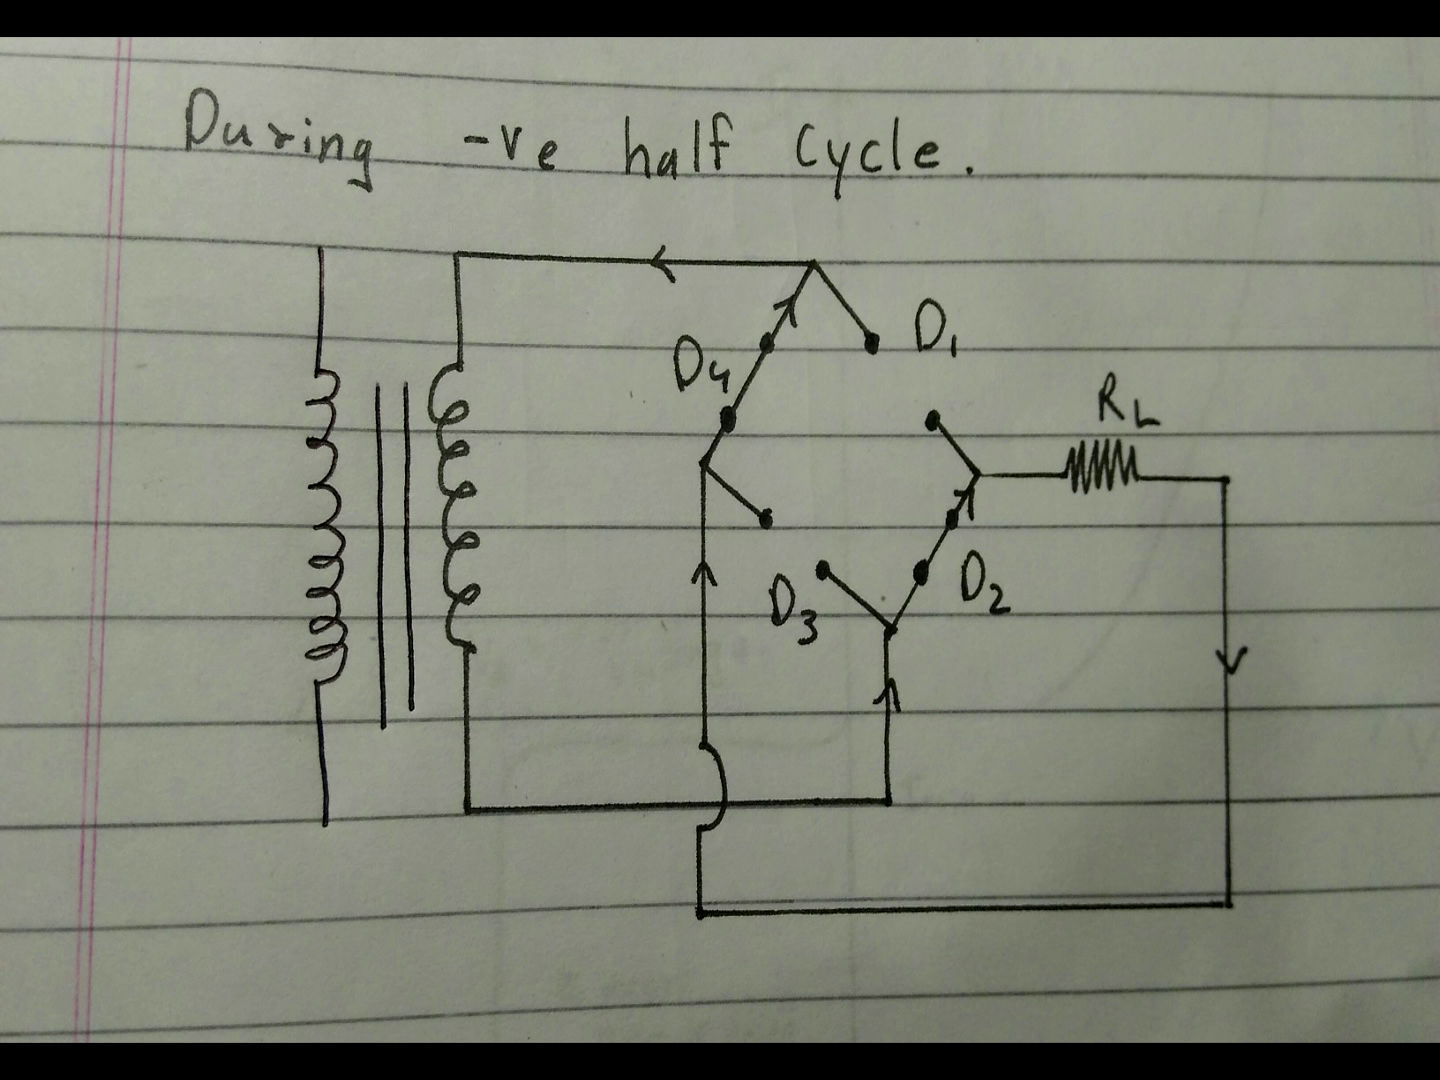 During -ve half cycle.
D₁
D₄
R_L
D₂
D₃